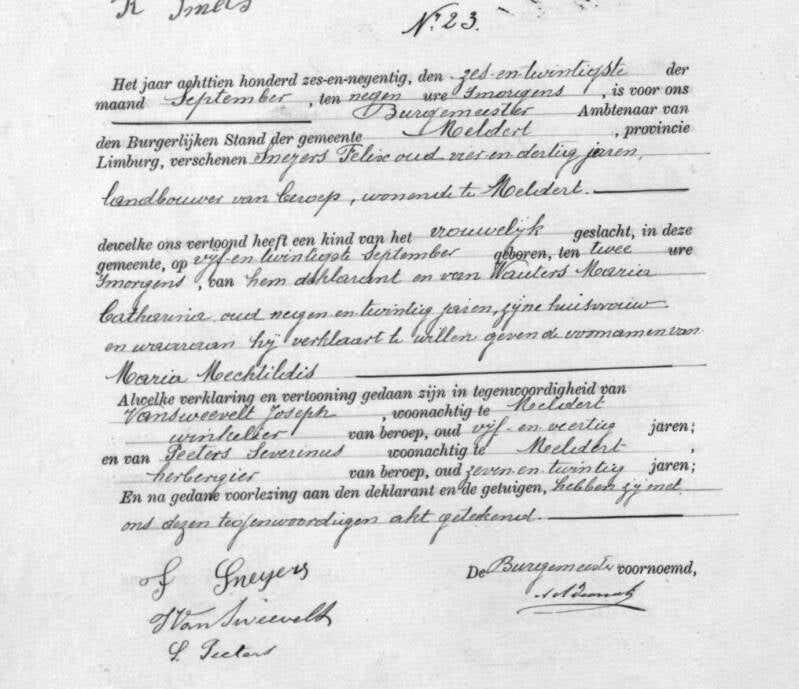 R Smets
Nr 23.
Het jaar achttien honderd zes-en-negentig, den zes-en-twintigste der
maand September, ten negen ure smorgens, is voor ons
Burgemeester Ambtenaar van
den Burgerlijken Stand der gemeente Meldert, provincie
Limburg, verschenen Sneyers Felix oud vier-en-dertig jaren,
landbouwer van beroep, wonende te Meldert.
dewelke ons vertoond heeft een kind van het vrouwelijk geslacht, in deze
gemeente, op vijf-en-twintigste September geboren, ten twee ure
smorgens, van hem deklarant en van Wauters Maria
Catharina oud negen-en-twintig jaren, zijne huisvrouw
en waaraan hij verklaart te willen geven de voornamen van
Maria Mechtildis
Alwelke verklaring en vertooning gedaan zijn in tegenwoordigheid van
Vansweevelt Joseph, woonachtig te Meldert
winkelier van beroep, oud vijf-en-veertig jaren;
en van Peeters Severinus woonachtig te Meldert,
herbergier van beroep, oud zeven-en-twintig jaren;
En na gedane voorlezing aan den deklarant en de getuigen, hebben zij met
ons dezen tegenwoordigen akt geteekend.
f Sneyers
De Burgemeester voornoemd,
J Van Sweevelt
S. Peeters